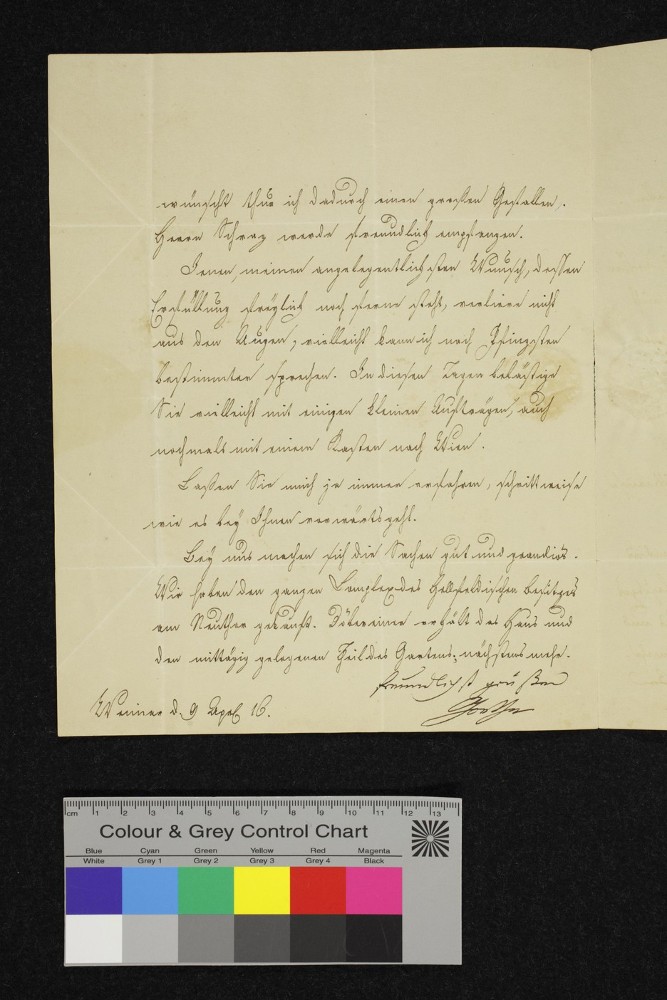 wünscht thue ich dadurch einen großen Gefallen.
Herrn Schwarz werde freundlich empfangen.
Jenen, meinen angelegentlichsten Wunsch, dessen
Erfüllung freylich noch ferne steht, verliere nicht
aus den Augen, vielleicht kann ich nach Pfingsten
bestimmter sprechen. In diesen Tagen belästige
Sie vielleicht mit einigen kleinen Aufträgen, auch
nochmals mit einem Kasten nach Wien.
Lassen Sie mich ja immer erfahren, schrittweise
wie es bey Ihnen vorwärts geht.
Bey uns machen sich die Sachen gut und grandios.
Wir haben den ganzen Complex des Hellfeldischen Besitzes
am Neuthor gekauft. Döbereiner erhält das Haus und
den mittägig gelegenen Theil des Gartens; nächstens mehr.
freundlichst grüßend
Goethe
Weimar d. 9 Apr 16.
cm 1 2 3 4 5 6 7 8 9 10 11 12 13
Colour & Grey Control Chart
Blue Cyan Green Yellow Red Magenta
White Grey 1 Grey 2 Grey 3 Grey 4 Black